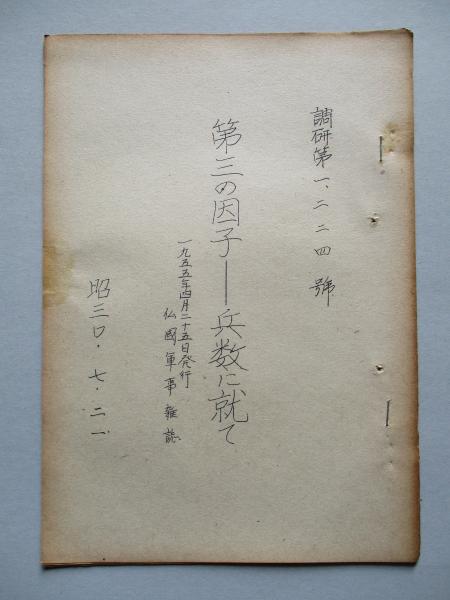 調研第一、二二四號
第三の因子―兵数に就て
一九五五年四月二十五日発行
仏國軍事雑誌
昭三〇・七・二一